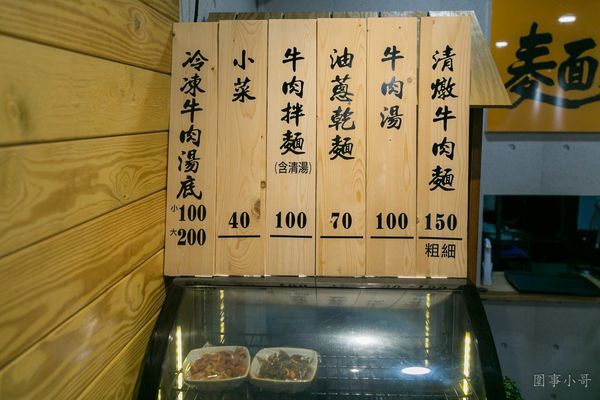 清燉牛肉麵
150
粗細
牛肉湯
100
油蔥乾麵
70
牛肉拌麵
(含清湯)
100
小菜
40
冷凍牛肉湯底
小100
大200
麥面
圍事小哥